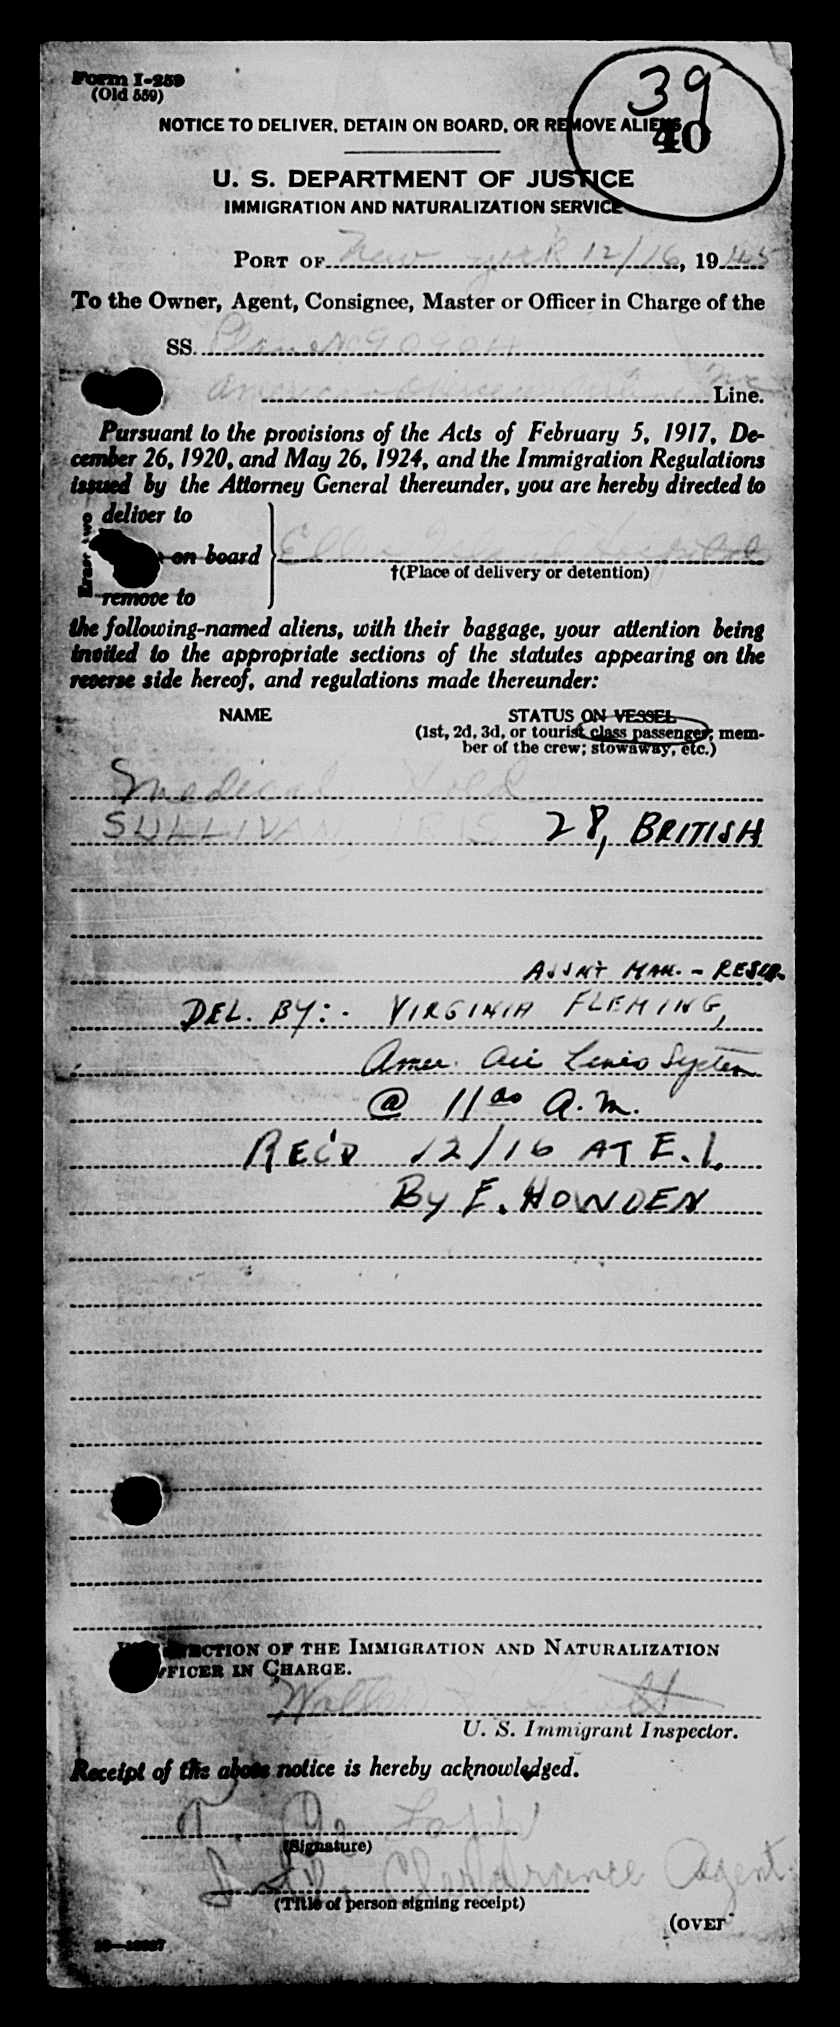 Form I-259
(Old 559)
39
40
NOTICE TO DELIVER, DETAIN ON BOARD, OR REMOVE ALIENS
U. S. DEPARTMENT OF JUSTICE
IMMIGRATION AND NATURALIZATION SERVICE
PORT OF New York 12/16, 1945
To the Owner, Agent, Consignee, Master or Officer in Charge of the
SS. Plane NC 90904
American Overseas Airlines Inc Line.
Pursuant to the provisions of the Acts of February 5, 1917, De-
cember 26, 1920, and May 26, 1924, and the Immigration Regulations
issued by the Attorney General thereunder, you are hereby directed to
deliver to
on board
Ellis Island Hospital
†(Place of delivery or detention)
Erase two
remove to
the following-named aliens, with their baggage, your attention being
invited to the appropriate sections of the statutes appearing on the
reverse side hereof, and regulations made thereunder:
NAME STATUS ON VESSEL
(1st, 2d, 3d, or tourist class passenger; mem-
ber of the crew; stowaway, etc.)
Medical Hold
SULLIVAN, IRIS 28, BRITISH
ASS'NT MAN. - RESER.
DEL. BY:- VIRGINIA FLEMING,
Amer. Air Lines System
@ 11 00 A.M.
REC'D 12/16 AT E.I.
By E. HOWDEN
DIRECTION OF THE IMMIGRATION AND NATURALIZATION
OFFICER IN CHARGE.
Walter Scott
U. S. Immigrant Inspector.
Receipt of the above notice is hereby acknowledged.
(Signature)
Clearance Agent.
(Title of person signing receipt)
(OVER